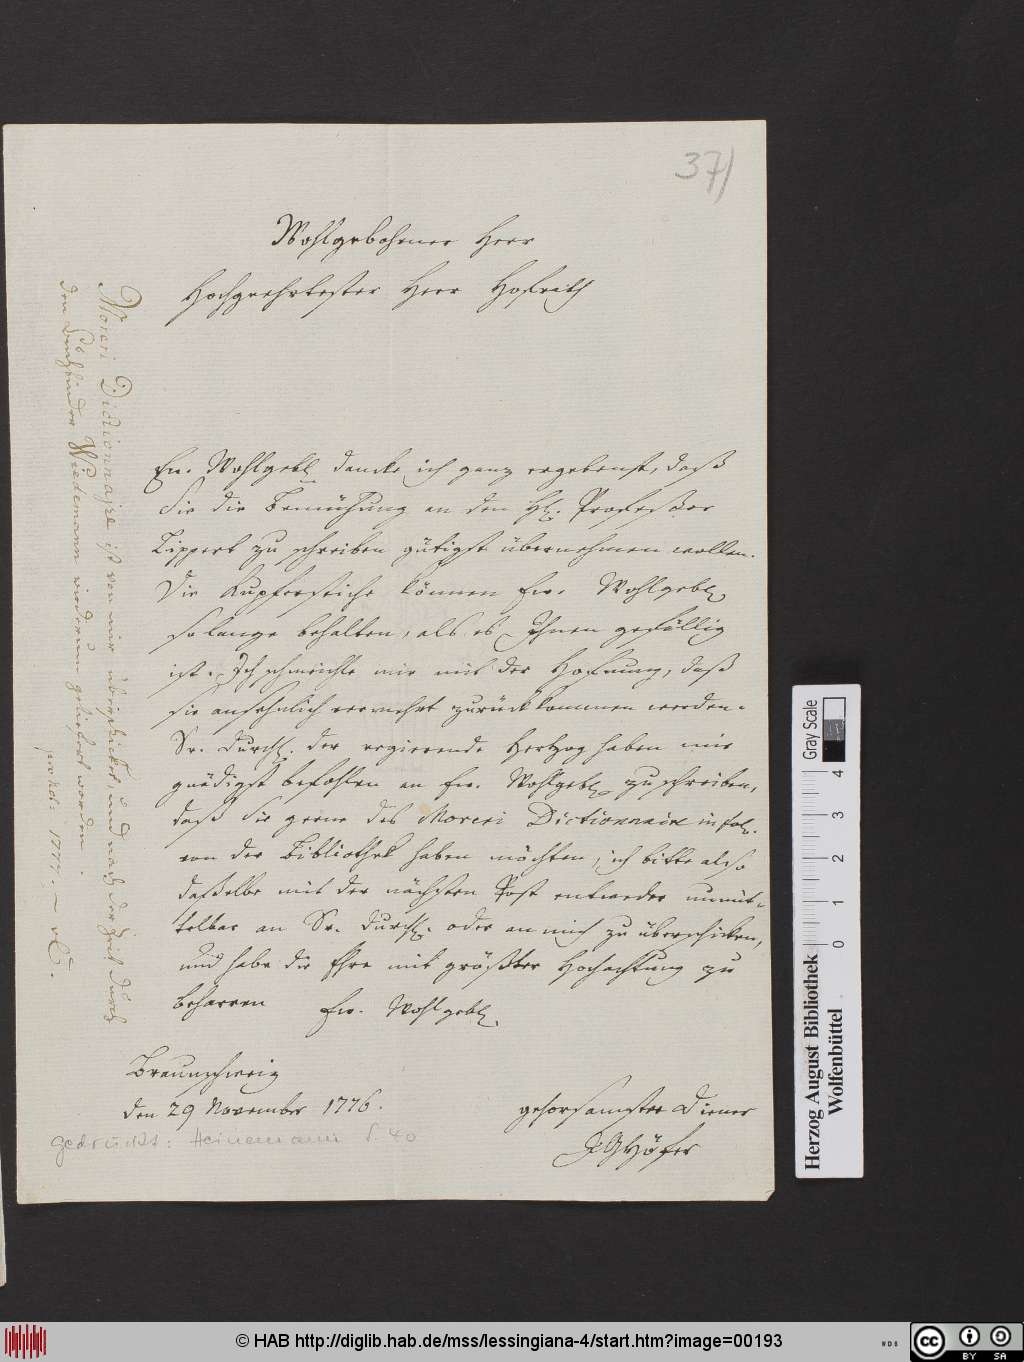 37)
Wohlgebohrner Herr
Hochgeehrtester Herr Hofrath
Ew. Wohlgebl dancke ich ganz ergebenst, daß
Sie die Bemühung an den H. Professor
Lippert zu schreiben gütigst übernehmen wollen.
Die Kupferstiche können Ew. Wohlgebl.
so lange behalten, als es Ihnen gefällig
ist. Ich schmeichle mir mit der Hofnung, daß
sie ansehnlich vermehrt zurück kommen werden.
Sr. Durchl. der regierende Hertzog haben mir
gnädigst befohlen an Ew. Wohlgebl. zu schreiben,
daß Sie gerne des Moreri Dictionnaire in fol.
von der Bibliothek haben möchten, ich bitte also
dasselbe mit der nächsten Post entweder unmit-
telbar an Sr. Durchl. oder an mich zu überschicken,
und habe die Ehre mit größter Hochachtung zu
beharren
Ew. Wohlgebl.
Braunschweig
den 29 November 1776.
gehorsamster Diener
JGHöfer
Moreri Dictionnaire ist von mir überschicket, und nach der Zeit durch
den Buchbinder Wiedemann wiederum geliefert worden.
1777.
gedruckt: Heinemann S. 40
Gray Scale
0 1 2 3 4
Herzog August Bibliothek
Wolfenbüttel
© HAB http://diglib.hab.de/mss/lessingiana-4/start.htm?image=00193
WDB
cc BY SA